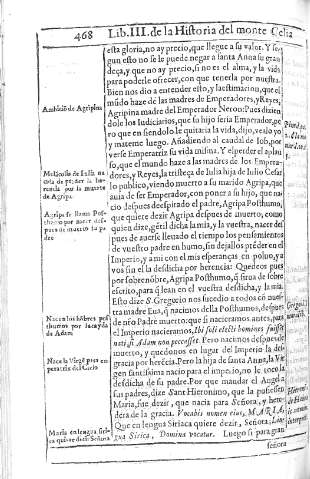 468 Lib. III. de la Historia del monte Celia
esta gloria, no ay precio, que llegue a su valor. Y se
gun esto no se le puede negar a santa Anna su gran
deça, y que no ay precio, si no es el alma, y la vida
para poderle ofrecer, con que tenerla por nuestra.
Bien nos dio a entender esto, y la estimacion, que el
mūdo haze de las madres de Emperadores, y Reyes,
Agripina madre del Emperador Neron: Pues dizien
dole los Iudiciarios, que su hijo seria Emperador, pe
ro que en siendolo le quitaria la vida, dijo, vealo yo
y mateme luego. Añadiendo al caudal de Iob, por
verse Emperatriz su vida misma. Y el perder el aplau
so, que el mundo haze a las madres de los Empera-
dores, y Reyes, la tristeça de Iulia hija de Iulio Cesar
lo publico, viendo muerto a su marido Agripa, que
auia de ser Emperador, con poner a su hijo, que na-
cio despues de espirado el padre, Agripa Posthumo,
que quiere dezir Agripa despues de muerto, como
quien dize, gētil dicha la mia, y la vuestra, nacer des
pues de auerse lleuado el tiempo los pensamientos
de vuestro padre en humo, sin dejallos prēder en el
Imperio, y ami con el mis esperanças en poluo, y a
vos sin el la desdicha por herencia: Quedeos pues
por sobrenōbre, Agripa Posthumo, q̄ sirua de sobre
escrito, para q̄ lean en el vuestra desdicha, y la mia.
Esto dize S. Gregorio nos sucedio a todos cō nues-
tra madre Eua, q̄ nacimos della Posthumos, despues
de nr̄o Padre muerto: que si nacieramos antes, para
el Imperio nacieramos, Ibi sola electi homines fuissēt
nati, si Adam non peccasset. Pero nacimos despues de
muerto, y quedonos en lugar del Imperio la des-
gracia por herēcia. Pero la hija de santa Anna, la Vir
gen santissima nacio para el imperio, no le toco la
desdicha de su padre. Por que mandar el Angel a
sus padres, dize Sant Hieronimo, que la pusiessen
Maria, fue dezir, que nacia para Señora, y here-
dera de la gracia. Vocabis nomen eius, MARIA,
Que en lengua Siriaca quiere dezir, Señora, Lin-
gua Siriaca, Domina vocatur. Luego si para gran
señora
Ambiciō de Agripina
por la muerte
de Agripa.
Nacen los hōbres pos
thumos por la cayda
de Adam
Nace la Virgē para em
peratriz del Cielo
Maria en lengua siria
ca quiere dezir Señora